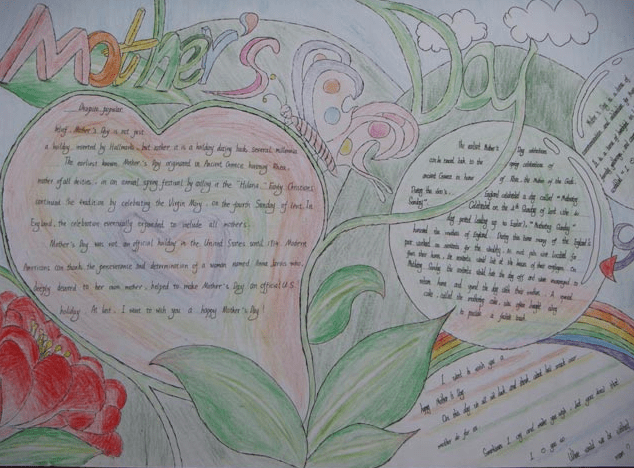 Mother's Day
Despite popular
belief, Mother's Day is not just
a holiday invented by Hallmark, but rather it is a holiday dating back several millennia
The earliest known Mother's Day originated in Ancient Greece honoring Rhea,
mother of all deities, in an annual spring festival by calling it the "Hilaria." Early Christians
continued the tradition by celebrating the Virgin Mary, on the fourth Sunday of Lent. In
England, the celebration eventually expanded to include all mothers.
Mother's Day was not an official holiday in the United States until 1914. Modern
Americans can thank the perseverance and determination of a woman named Anna Jarvis who,
deeply devoted to her own mother, helped to make Mother's Day an official U.S.
holiday. At last, I want to wish you a happy Mother's Day!
The earliest Mother's Day celebrations
can be traced back to the spring celebrations of
ancient Greece in honor of Rhea, the Mother of the Gods.
During the England celebrated a day called "Mothering
Sunday". Celebrated on the 4th Sunday of Lent
day period leading up to Easter), "Mothering Sunday"
honored the mothers of England. During this time many of the England's
poor worked as servants for the wealthy. As most jobs were located far
from their homes, the servants would live at the houses of their employers. On
Mothering Sunday the servants would have the day off and were encouraged to
return home and spend the day with their mothers. A special
cake, called the mothering cake, was often brought along
to provide a festive touch.
I want to wish you a
happy Mother's Day
On this day we all sit back and think about
mother do for us.
Sometimes I cry and make you
I